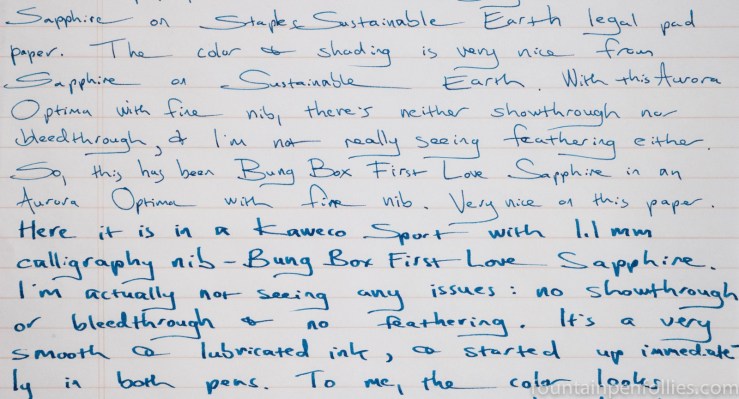 Sapphire on Staples Sustainable Earth legal pad
paper. The color & shading is very nice from
Sapphire on Sustainable Earth. With this Aurora
Optima with fine nib, there's neither showthrough nor
bleedthrough, & I'm not really seeing feathering either.
So, this has been Bung Box First Love Sapphire in an
Aurora Optima with fine nib. Very nice on this paper.
Here it is in a Kaweco Sport with 1.1 mm
calligraphy nib - Bung Box First Love Sapphire.
I'm actually not seeing any issues: no showthrough
or bleedthrough & no feathering. It's a very
smooth & lubricated ink, & started up immediate-
ly in both pens. To me, the color looks
fountainpenfollies.com